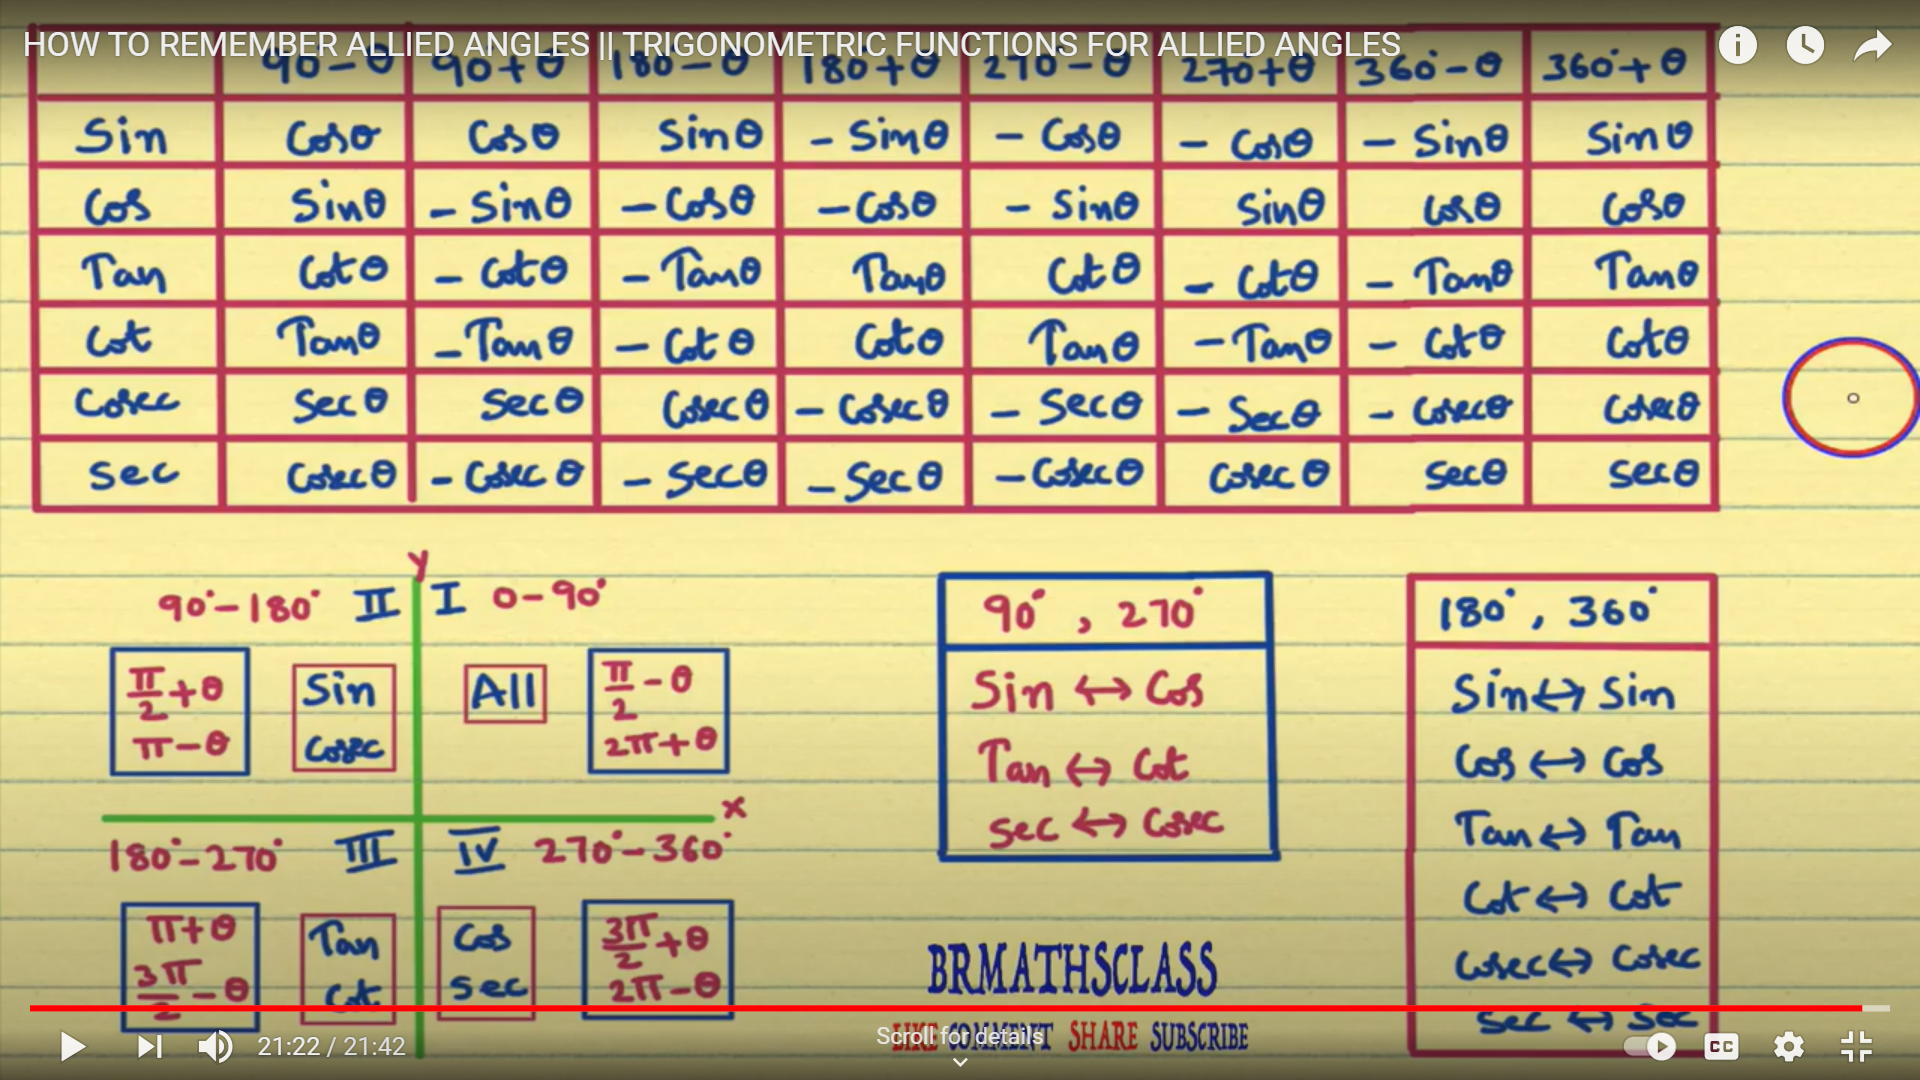 HOW TO REMEMBER ALLIED ANGLES || TRIGONOMETRIC FUNCTIONS FOR ALLIED ANGLES
90°-θ 90+θ 180-θ 180+θ 270-θ 270+θ 360°-θ 360°+θ
Sin Cosθ Cosθ Sinθ - Sinθ - Cosθ - Cosθ - Sinθ Sinθ
Cos Sinθ - Sinθ - Cosθ - Cosθ - Sinθ Sinθ Cosθ Cosθ
Tan Cotθ - Cotθ - Tanθ Tanθ Cotθ - Cotθ - Tanθ Tanθ
Cot Tanθ - Tanθ - Cotθ Cotθ Tanθ - Tanθ - Cotθ Cotθ
Cosec Secθ Secθ Cosecθ - Cosecθ - Secθ - Secθ - Cosecθ Cosecθ
Sec Cosecθ - Cosecθ - Secθ - Secθ - Cosecθ Cosecθ Secθ Secθ
y
90°-180° II I 0-90°
π/2+θ
π-θ
Sin
Cosec
All
π/2-θ
2π+θ
x
180°-270° III IV 270°-360°
π+θ
3π/2-θ
Tan
Cot
Cos
Sec
3π/2+θ
2π-θ
90°, 270°
Sin ↔ Cos
Tan ↔ Cot
Sec ↔ Cosec
180°, 360°
Sin ↔ Sin
Cos ↔ Cos
Tan ↔ Tan
Cot ↔ Cot
Cosec ↔ Cosec
Sec ↔ Sec
BRMATHSCLASS
LIKE COMMENT SHARE SUBSCRIBE
Scroll for details
21:22 / 21:42
CC